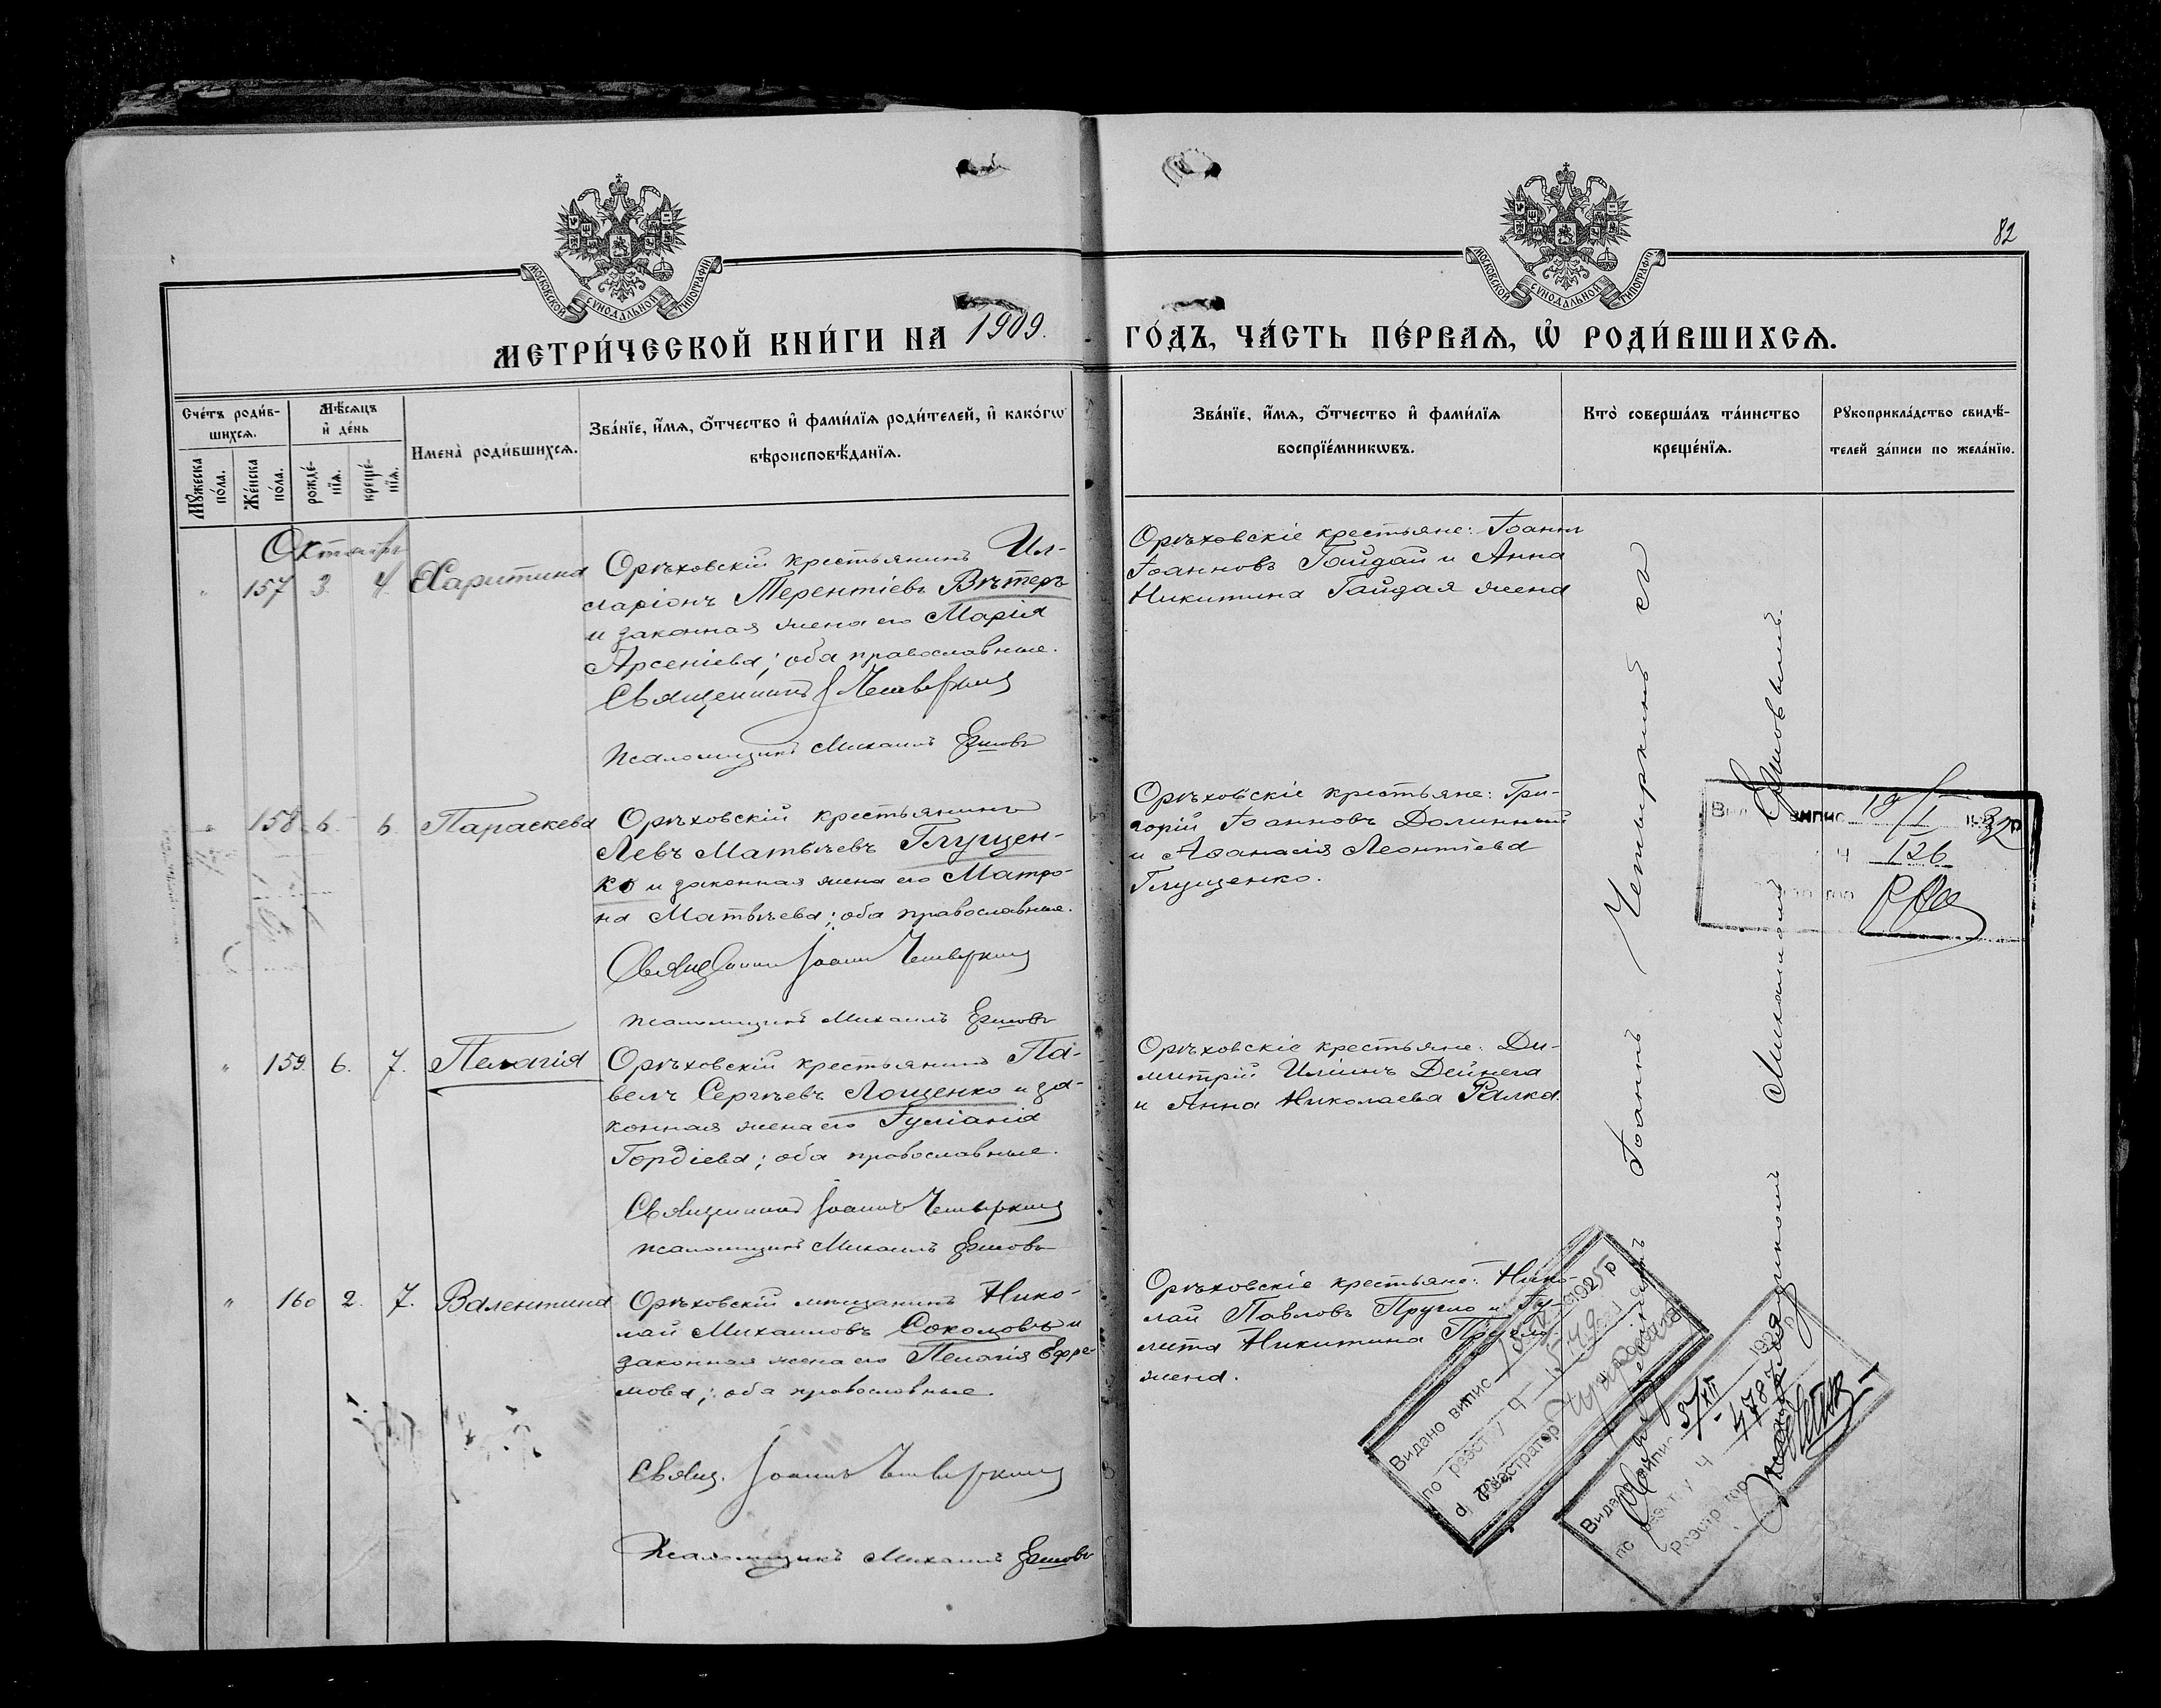 82
МОСКОВСКОЙ СѴНОДАЛЬНОЙ ТИПОГРАФІИ
МОСКОВСКОЙ СѴНОДАЛЬНОЙ ТИПОГРАФІИ
МЕТРИ́ЧЕСКОЙ КНИ́ГИ НА 1909. ГО́ДЪ, ЧА́СТЬ ПЕ́РВАѦ, Ѡ҆ РОДИ́ВШИХСѦ.
Сче́тъ роди́в-
шихсѧ.
Мѣ́сѧцъ
и҆ де́нь
Мꙋ́жеска
по́ла.
Же́нска
по́ла.
рожде́-
нїѧ.
креще́-
нїѧ.
Имена̀ роди́вшихсѧ.
Зва́нїе, и҆́мѧ, ѻ҆́тчество и҆ фами́лїѧ роди́телей, и҆ како́гѡ
вѣроисповѣ́данїѧ.
Зва́нїе, и҆́мѧ, ѻ҆́тчество и҆ фами́лїѧ
воспрїе́мникѡвъ.
Кто̀ соверша́лъ та́инство
креще́нїѧ.
Рꙋкоприкла́дство свидѣ́-
телей за́писи по жела́нїю.
Октябрь
" 157 3. 4. Харитина
Орѣховскій крестьянинъ Ил-
ларіонъ Терентіевъ Вѣтеръ
и законная жена его Марія
Арсеніева; оба православные.
Священникъ І Четверкинъ
Псаломщикъ Михаилъ Ершовъ
Орѣховскіе крестьяне: Іоаннъ
Іоанновъ Гайдай и Анна
Никитина Гайдая жена
" 158 6. 6. Параскева
Орѣховскій крестьянинъ
Левъ Матвѣевъ Глущен-
ко и законная жена его Матро-
на Матвѣева; оба православные.
Священникъ Іоаннъ Четверкинъ
Псаломщикъ Михаилъ Ершовъ
Орѣховскіе крестьяне: Гри-
горій Іоанновъ Долинный
и Аѳанасія Леонтіева
Глущенко.
" 159. 6. 7. Пелагія
Орѣховскій крестьянинъ Па-
велъ Сергѣевъ Лощенко и за-
конная жена его Іуліанія
Гордіева; оба православные.
Священникъ Іоаннъ Четверкинъ
Псаломщикъ Михаилъ Ершовъ
Орѣховскіе крестьяне: Ди-
митрій Иліинъ Дейнега
и Анна Николаева Ралка.
" 160 2. 7. Валентина
Орѣховскій мѣщанинъ Нико-
лай Михаиловъ Соколовъ и
законная жена его Пелагія Ефре-
мова; оба православные.
Свящ. Іоаннъ Четверкинъ
Псаломщикъ Михаилъ Ершовъ
Орѣховскіе крестьяне: Нико-
лай Павловъ Пругло и Іу-
литта Никитина Пругло
жена.
Іоаннъ Четверкинъ съ
Михаиломъ Ершовымъ.
випис 19/I 32
ч 126
Видано випис 1925 р
по реэстру ч
Реэстратор
Видано випис 37/XII 192
по реэстру ч 4787
Реэстратор